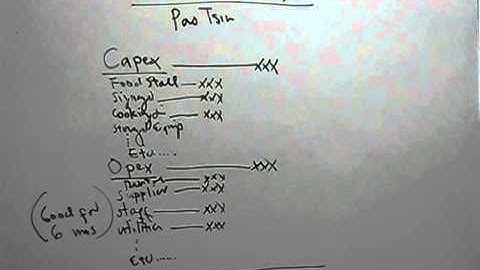 Pao Tsin
Capex xxx
Food Stall xxx
Signage xxx
Cooking xxx
Storage Equip
Etc.....
Opex xxx
xxx
Supplies xxx
(Good for 6 mos) staff xxx
utilities xxx
Etc.....